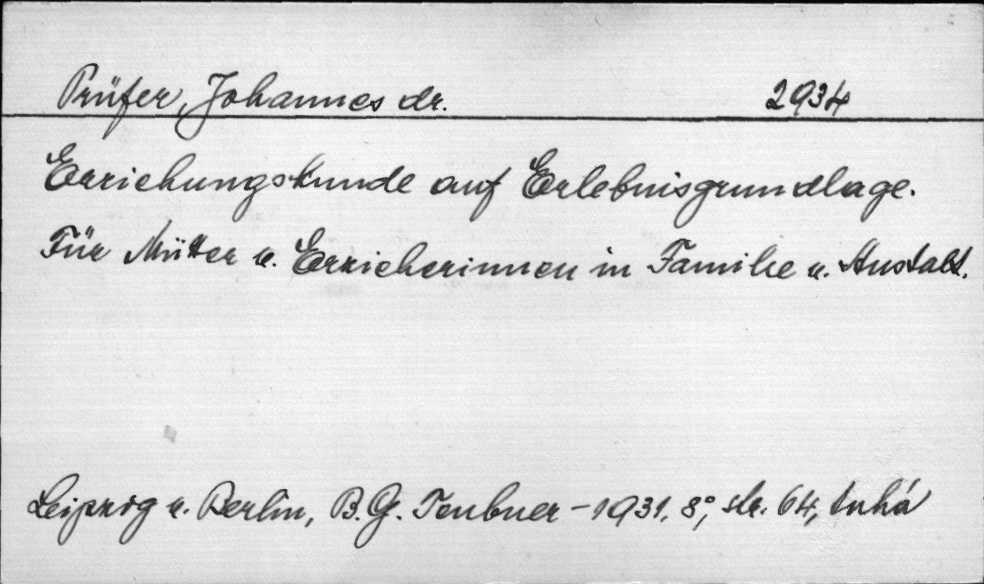 Prüfer, Johannes dr. 2934
Erziehungskunde auf Erlebnisgrundlage.
Für Mütter u. Erzieherinnen in Familie u. Anstalt.
Leipzig u. Berlin, B. G. Teubner - 1931. 8°, str. 64, tuhá